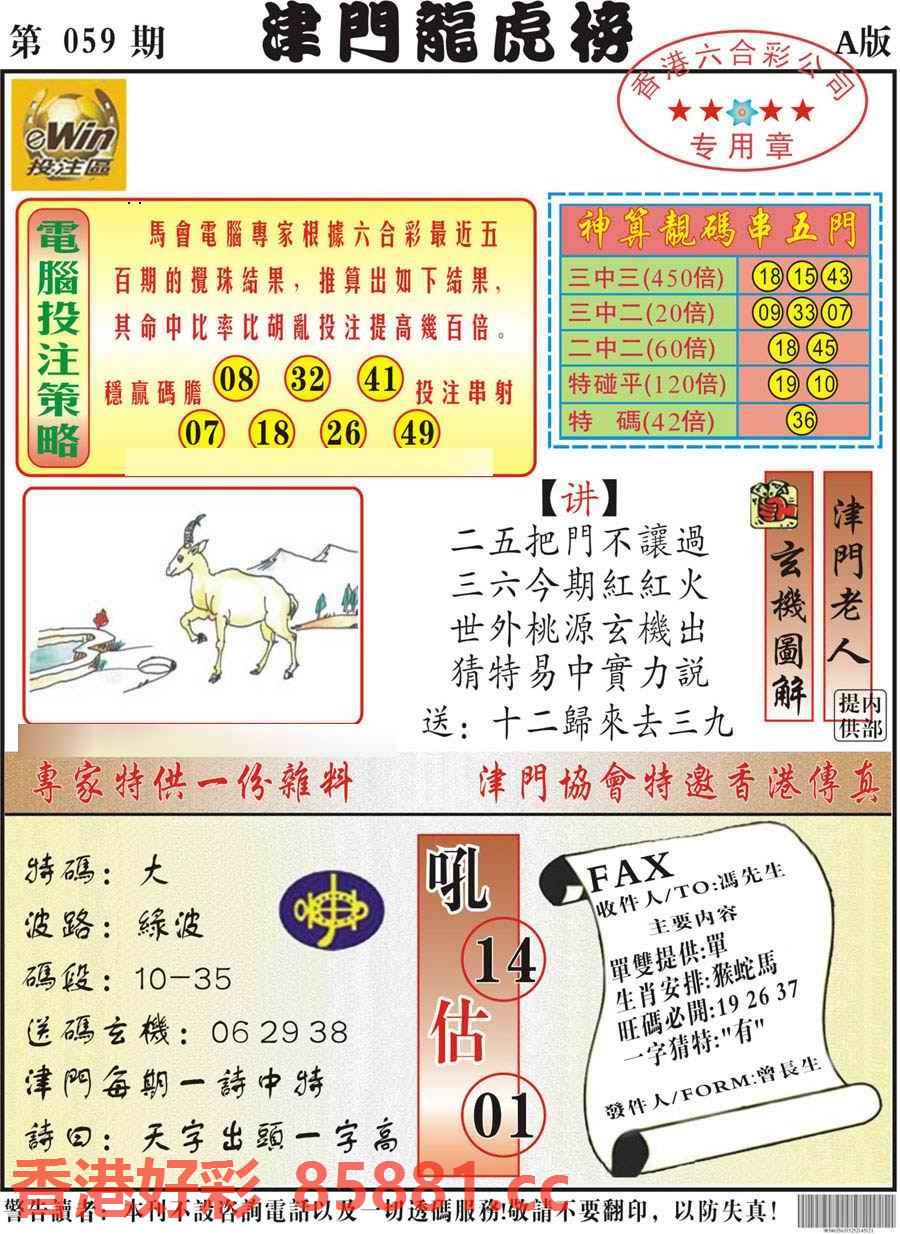 第 059 期
津門龍虎榜
A版
香港六合彩公司
专用章
eWin
投注區
電腦投注策略
馬會電腦專家根據六合彩最近五
百期的攪珠結果，推算出如下結果，
其命中比率比胡亂投注提高幾百倍。
穩贏碼膽 08 32 41 投注串射
07 18 26 49
神算靚碼串五門
三中三(450倍) 18 15 43
三中二(20倍) 09 33 07
二中二(60倍) 18 45
特碰平(120倍) 19 10
特 碼(42倍) 36
【讲】
二五把門不讓過
三六今期紅紅火
世外桃源玄機出
猜特易中實力説
送：十二歸來去三九
玄機圖解
津門老人
提供
内部
專家特供一份雜料
津門協會特邀香港傳真
特碼：大
波路：綠波
碼段：10-35
送碼玄機：06 29 38
津門每期一詩中特
詩曰：天字出頭一字高
吼
14
估
01
FAX
收件人/TO:馮先生
主要内容
單雙提供:單
生肖安排:猴蛇馬
旺碼必開:19 26 37
一字猜特:"有"
發件人/FORM:曾長生
香港好彩 85881.cc
警告讀者：本刊不設咨詢電話以及一切透碼服務!敬請不要翻印，以防失真!